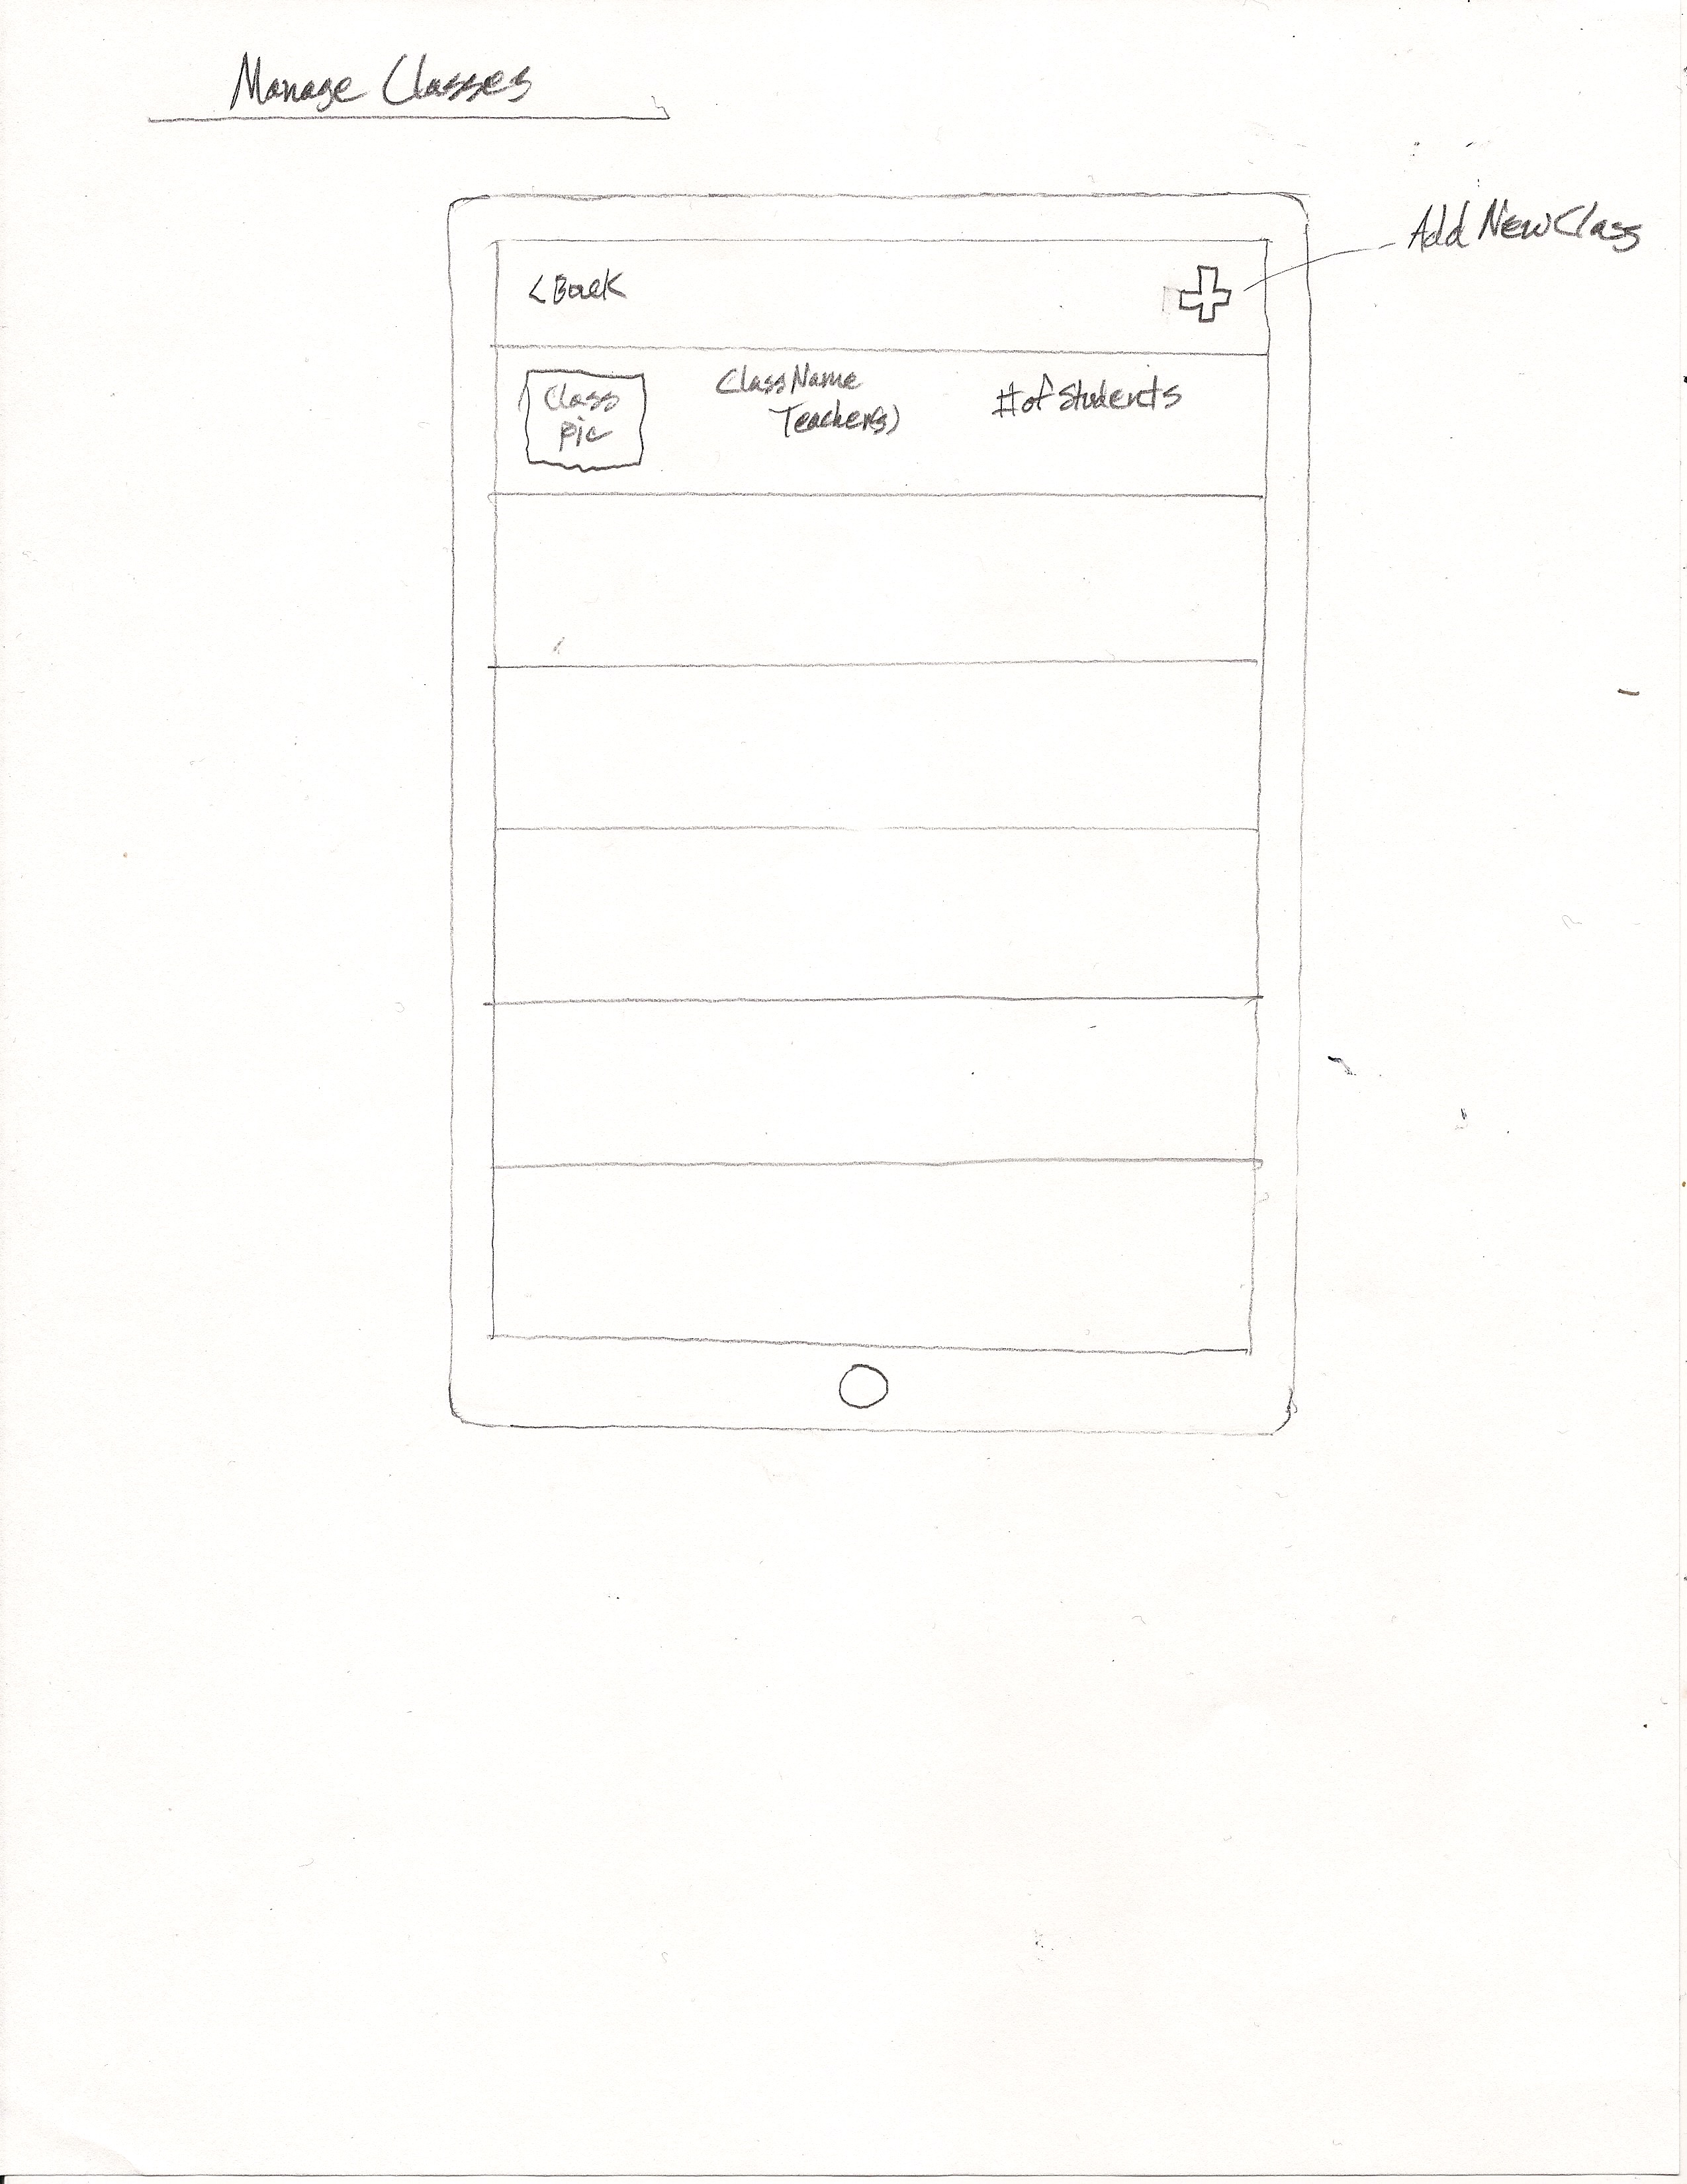 Manage Classes
Add New Class
< Back
Class
pic
Class Name
Teacher(s)
# of students